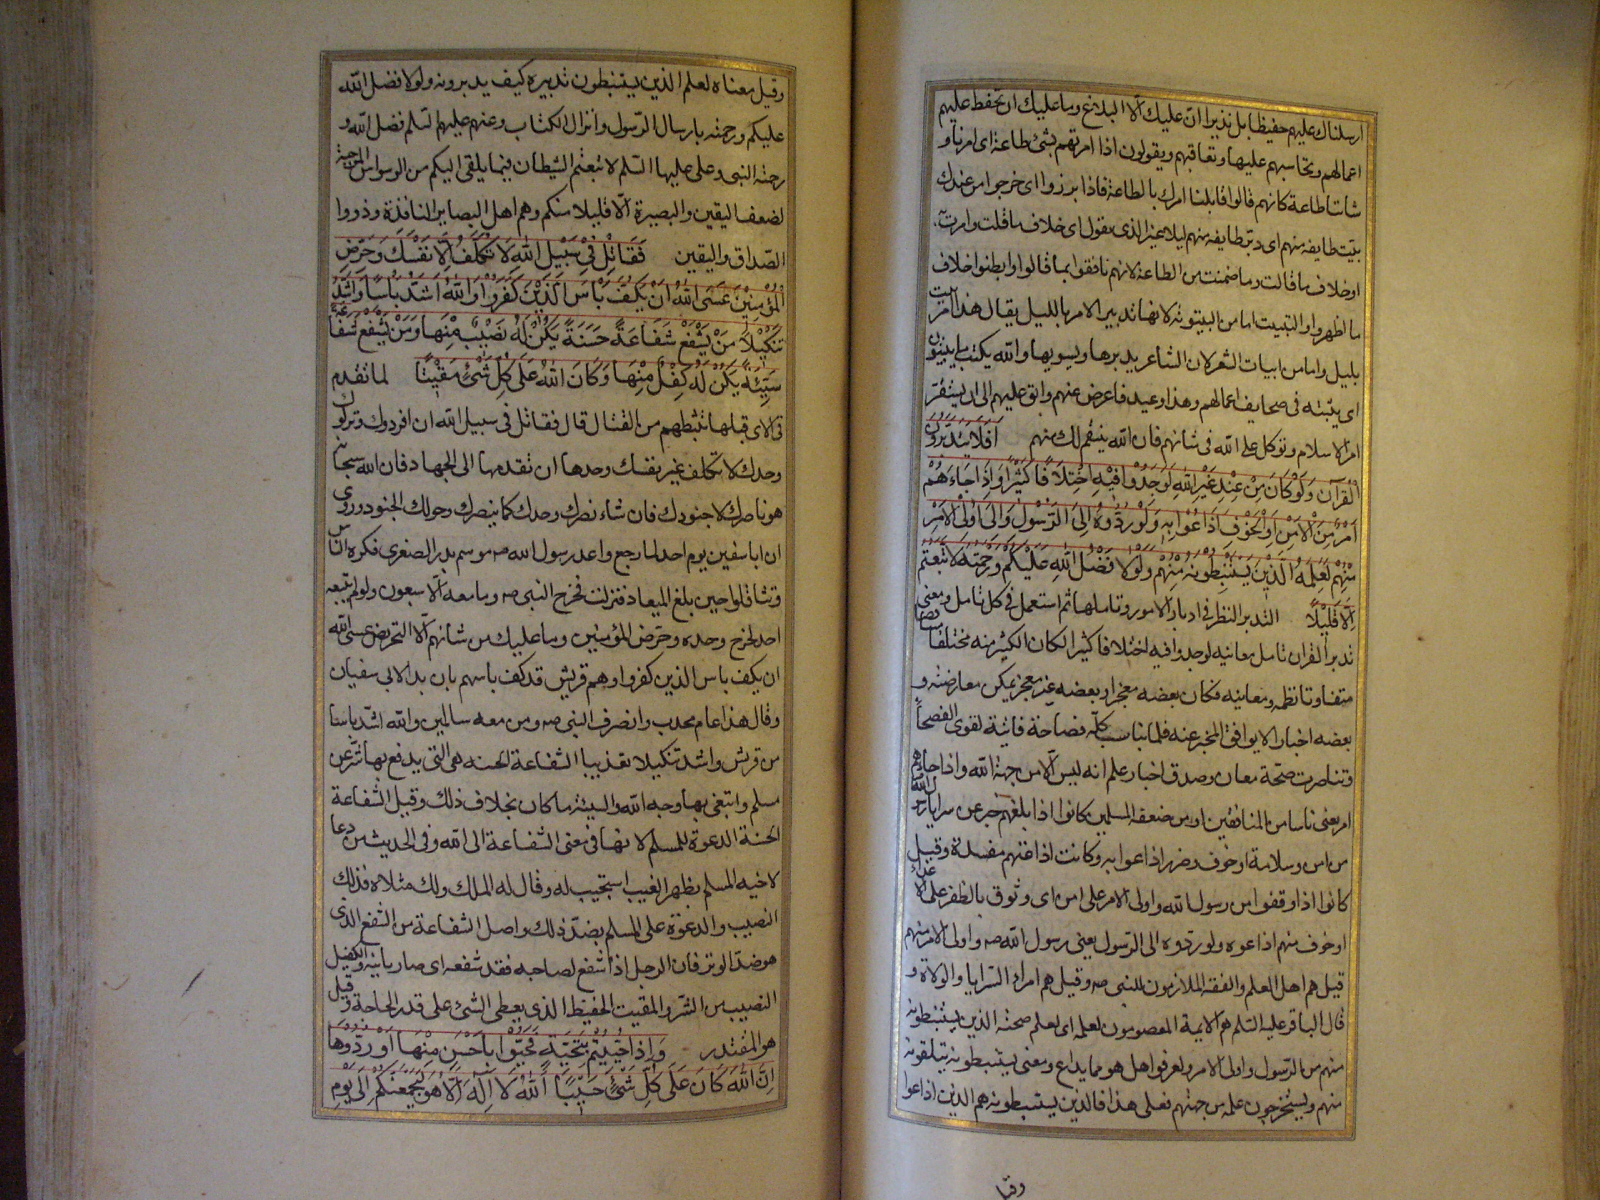 ارسلناك عليهم حفيظا بل نذيرا ان عليك الا البلاغ وما عليك ان تحفظ عليهم
اعمالهم وتحاسبهم عليها وتعاقبهم ويقولون اذا امرتهم بشئ طاعة اى امرنا و
شاننا طاعة كانهم قالوا قابلنا امرك بالطاعة فاذا برزوا اى خرجوا من عندك
بيت طايفة منهم اى دبر طايفة منهم ليلا غير الذى يقول اى خلاف ما قلت وامرت به
او خلاف ما قالت وما ضمنت من الطاعة لانهم نافقوا بما قالوا وابطنوا خلاف
ما اظهروا والتبييت اما من البيتوتة لانها تدبير الامر بالليل يقال هذا امر بيت
بليل واما من ابيات الشعر لان الشاعر يدبرها ويسويها والله يكتب ما يبيتون
اى يثبته فى صحايف اعمالهم وهذا وعيد فاعرض عنهم وابق عليهم الى ان يستقر
امر الاسلام وتوكل على الله فى شانهم فان الله ينتقم لك منهم افلا يتدبرون
القرآن ولو كان من عند غير الله لوجدوا فيه اختلافا كثيرا واذا جاءهم
امر من الامن او الخوف اذاعوا به ولو ردوه الى الرسول والى اولى الامر
منهم لعلمه الذين يستنبطونه منهم ولولا فضل الله عليكم ورحمته لاتبعتم
الا قليلا التدبر النظر فى ادبار الامور وتاملها ثم استعمل فى كل تامل ومعنى
تدبر القران تامل معانيه لوجدوا فيه اختلافا كثيرا لكان الكثير منه مختلفا
متفاوتا نظمه ومعانيه فكان بعضه معجزا وبعضه غير معجز يمكن معارضته و
بعضه اخبارا لا يوافق المخبر عنه فلما تناسب كله فصاحة فائتة لقوى الفصحاء
وتناصرت صحة معان وصدق اخبار علم انه ليس الا من جهة الله واذا جاءهم
امر يعنى ناسا من المنافقين او من ضعفة المسلمين كانوا اذا بلغهم خبر عن سرايا رسول الله
من امن وسلامة او خوف وضرر اذاعوا به وكانت اذاعتهم مفسدة وقيل
كانوا اذا وقفوا من رسول الله واولى الامر على امن اى وثوق بالظفر على الاعداء
او خوف منهم اذاعوه ولو ردوه الى الرسول يعنى رسول الله ص واولى الامر منهم
قيل هم اهل العلم والفقه الملازمون للنبى ص وقيل هم امراء السرايا والولاة و
قال الباقر عليه السلم هم الايمة المعصومون لعلمه اى لعلم صحته الذين يستنبطونه
منهم من الرسول واولى الامر ولعرفوا هل هو مما يذاع ومعنى يستنبطونه يتلقونه
منهم ويستخرجون علمه من جهتهم فعلى هذا فالذين يستنبطونه هم الذين اذاعوا
وقيل معناه لعلم الذين يستنبطون تدبيره كيف يدبرونه ولولا فضل الله
عليكم ورحمته بارسال الرسول وانزال الكتاب وعنهم عليهم السلم فضل الله و
رحمته النبى وعلى عليها السلم لاتبعتم الشيطان فيما يلقى اليكم من الوسواس الموجبة
لضعف اليقين والبصيرة الا قليلا منكم وهم اهل البصاير النافذة وذووا
الصداق واليقين فقاتل فى سبيل الله لا تكلف الا نفسك وحرض
المؤمنين عسى الله ان يكف بأس الذين كفروا والله اشد بأسا واشد
تنكيلا من يشفع شفاعة حسنة يكن له نصيب منها ومن يشفع شفاعة
سيئة يكن له كفل منها وكان الله على كل شئ مقيتا لما تقدم
فى الاى قبلها تثبطهم من القتال قال فقاتل فى سبيل الله ان افردوك وتركوك
وحدك لا تكلف غير نفسك وحدها ان تقدمها الى الجهاد فان الله سبحانه
هو ناصرك لا جنودك فان شاء نصرك وحدك كما ينصرك وحولك الجنود وروى
ان ابا سفين يوم احد لما رجع واعد رسول الله ص موسم بدر الصغرى فكره الناس
وتثاقلوا حين بلغ الميعاد فنزلت فخرج النبى ص وما معه الا سبعون ولو لم يتبعه
احد لخرج وحده وحرض المؤمنين وما عليك من شانهم الا التحريض عسى الله
ان يكف باس الذين كفروا وهم قريش قد كف باسهم بان بدا لابى سفيان
وقال هذا عام مجدب وانصرف النبى ص ومن معه سالمين والله اشد باسا
من قريش واشد تنكيلا تعذيبا الشفاعة الحسنة هى التى يدفع بها شر عن
مسلم وابتغى بها وجه الله والسيئة ما كان بخلاف ذلك وقيل الشفاعة
الحسنة الدعوة للمسلم لانها فى معنى الشفاعة الى الله وفى الحديث من دعا
لاخيه المسلم بظهر الغيب استجيب له وقال له الملك ولك مثلاه فذلك
النصيب والدعوة على المسلم بضد ذلك واصل الشفاعة من الشفع الذى
هو ضد الوتر فان الرجل اذا شفع لصاحبه فقد شفعه اى صار ثانيه والكفل
النصيب من الشر والمقيت الحفيظ الذى يعطى الشئ على قدر الحاجة وقيل
هو المقتدر واذا حييتم بتحية فحيوا باحسن منها او ردوها
ان الله كان على كل شئ حسيبا الله لا اله الا هو ليجمعنكم الى يوم